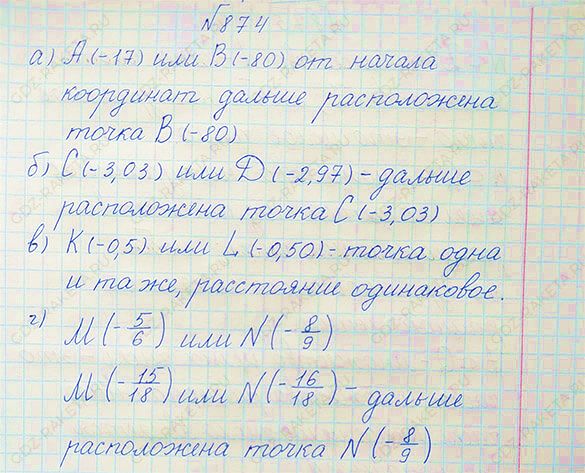 №874
а) A(-17) или B(-80) от начала
координат дальше расположена
точка B(-80)
б) C(-3,03) или D(-2,97) - дальше
расположена точка C(-3,03)
в) K(-0,5) или L(-0,50) - точка одна
и та же, расстояние одинаковое.
г) M(-5/6) или N(-8/9)
M(-15/18) или N(-16/18) - дальше
расположена точка N(-8/9)
GDZ-RAKETA.RU